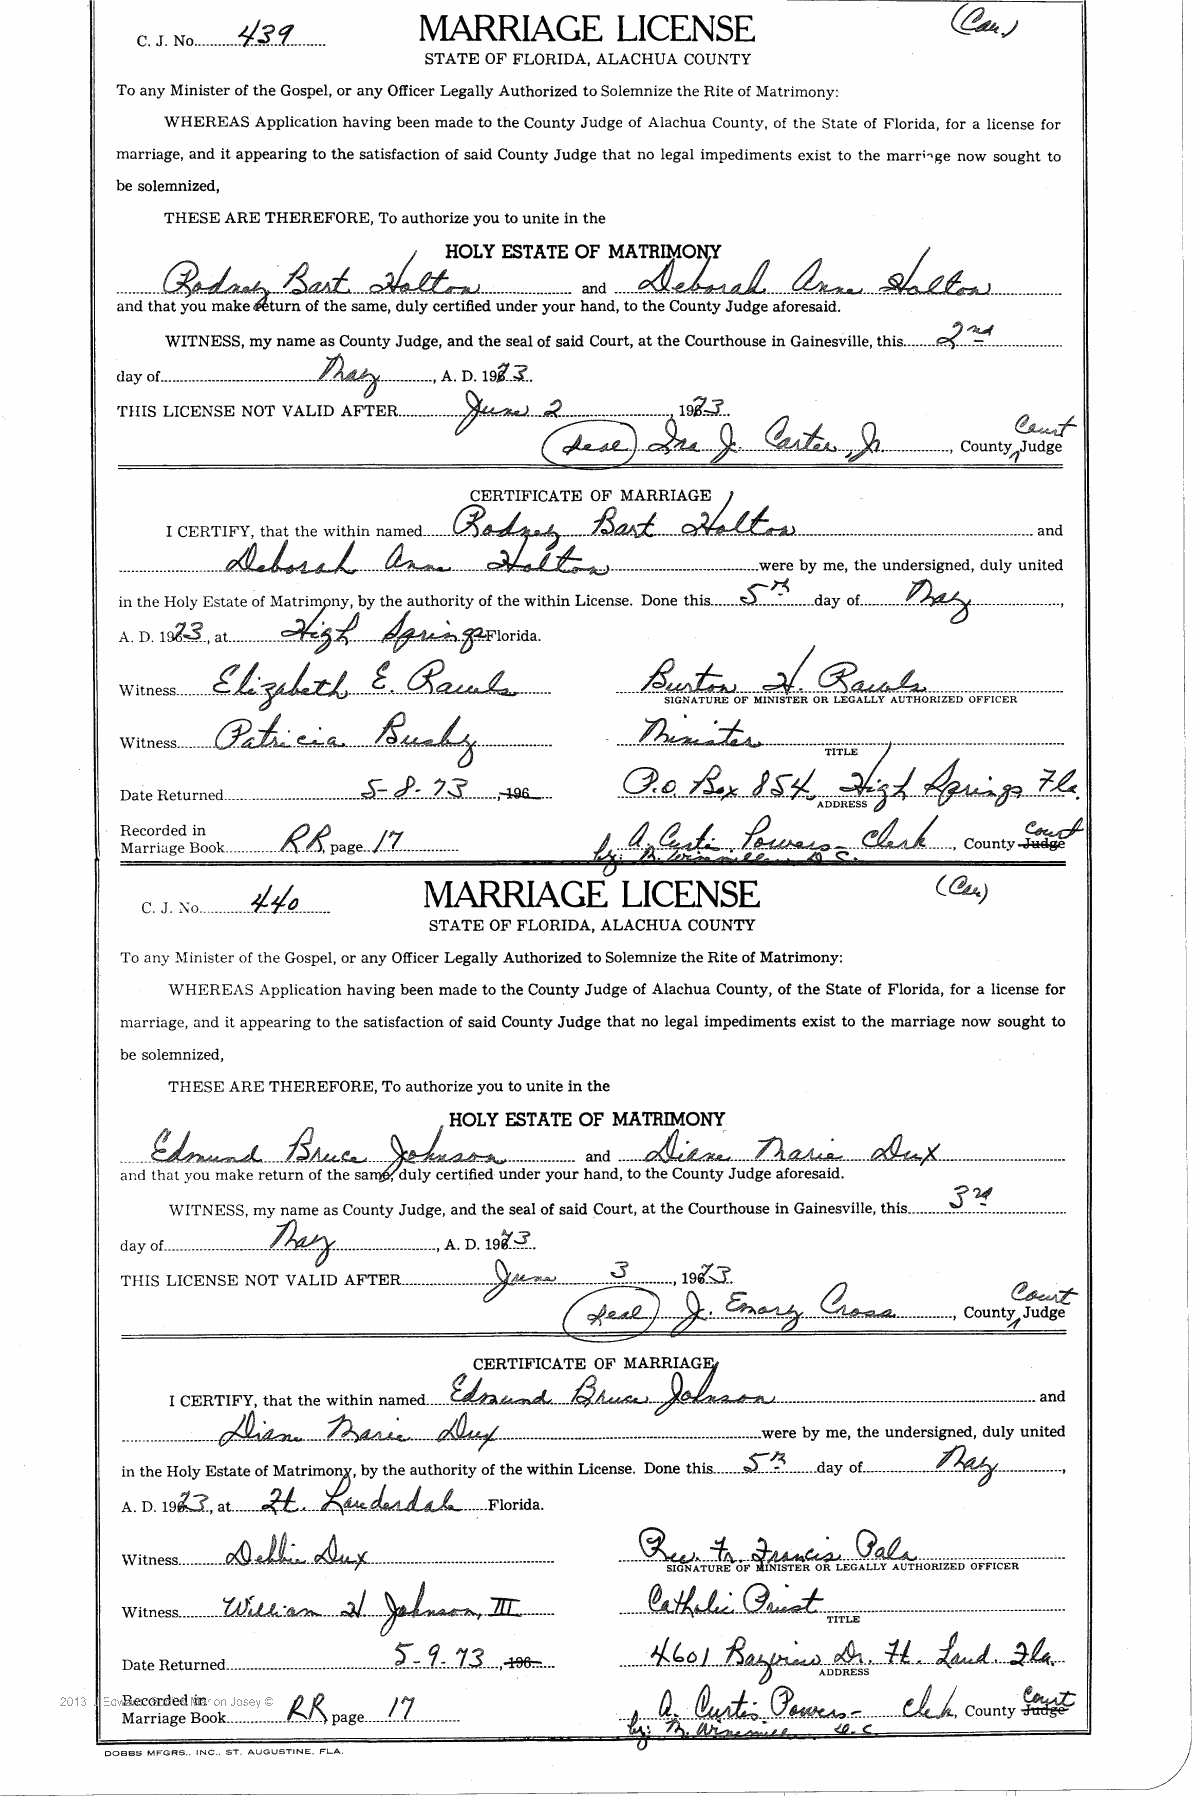 C. J. No. 439 MARRIAGE LICENSE (Cau.)
STATE OF FLORIDA, ALACHUA COUNTY
To any Minister of the Gospel, or any Officer Legally Authorized to Solemnize the Rite of Matrimony:
WHEREAS Application having been made to the County Judge of Alachua County, of the State of Florida, for a license for
marriage, and it appearing to the satisfaction of said County Judge that no legal impediments exist to the marriage now sought to
be solemnized,
THESE ARE THEREFORE, To authorize you to unite in the
HOLY ESTATE OF MATRIMONY
Rodney Bart Holton and Deborah Anne Holton
and that you make return of the same, duly certified under your hand, to the County Judge aforesaid.
WITNESS, my name as County Judge, and the seal of said Court, at the Courthouse in Gainesville, this 2nd
day of May, A. D. 1973.
THIS LICENSE NOT VALID AFTER June 2, 1973.
(Seal) Ira J. Carter, Jr., County Court Judge
CERTIFICATE OF MARRIAGE
I CERTIFY, that the within named Rodney Bart Holton and
Deborah Anne Holton were by me, the undersigned, duly united
in the Holy Estate of Matrimony, by the authority of the within License. Done this 5th day of May,
A. D. 1973, at High Springs Florida.
Witness Elizabeth E. Rawls Burton H. Rawls
SIGNATURE OF MINISTER OR LEGALLY AUTHORIZED OFFICER
Witness Patricia Busby Minister
TITLE
Date Returned 5-8-73, 196 P.O. Box 854, High Springs Fla.
ADDRESS
Recorded in
Marriage Book RR page 17 A. Curtis Powers - Clerk, County Court Judge
by: D.C.
C. J. No. 440 MARRIAGE LICENSE (Cau)
STATE OF FLORIDA, ALACHUA COUNTY
To any Minister of the Gospel, or any Officer Legally Authorized to Solemnize the Rite of Matrimony:
WHEREAS Application having been made to the County Judge of Alachua County, of the State of Florida, for a license for
marriage, and it appearing to the satisfaction of said County Judge that no legal impediments exist to the marriage now sought to
be solemnized,
THESE ARE THEREFORE, To authorize you to unite in the
HOLY ESTATE OF MATRIMONY
Edmund Bruce Johnson and Diane Marie Dux
and that you make return of the same, duly certified under your hand, to the County Judge aforesaid.
WITNESS, my name as County Judge, and the seal of said Court, at the Courthouse in Gainesville, this 3rd
day of May, A. D. 1973.
THIS LICENSE NOT VALID AFTER June 3, 1973.
(Seal) J. Emory Cross, County Court Judge
CERTIFICATE OF MARRIAGE
I CERTIFY, that the within named Edmund Bruce Johnson and
Diane Marie Dux were by me, the undersigned, duly united
in the Holy Estate of Matrimony, by the authority of the within License. Done this 5th day of May,
A. D. 1973, at Ft. Lauderdale Florida.
Witness Debbie Dux Rev. Fr. Francis Pala
SIGNATURE OF MINISTER OR LEGALLY AUTHORIZED OFFICER
Witness William H Johnson, III Catholic Priest
TITLE
Date Returned 5-9-73, 196 4601 Bayview Dr. Ft. Laud. Fla.
ADDRESS
Recorded in
Marriage Book RR page 17 A. Curtis Powers - Clerk, County Court Judge
by: D.C.
2013 Josey ©
DOBBS MFGRS., INC., ST. AUGUSTINE, FLA.